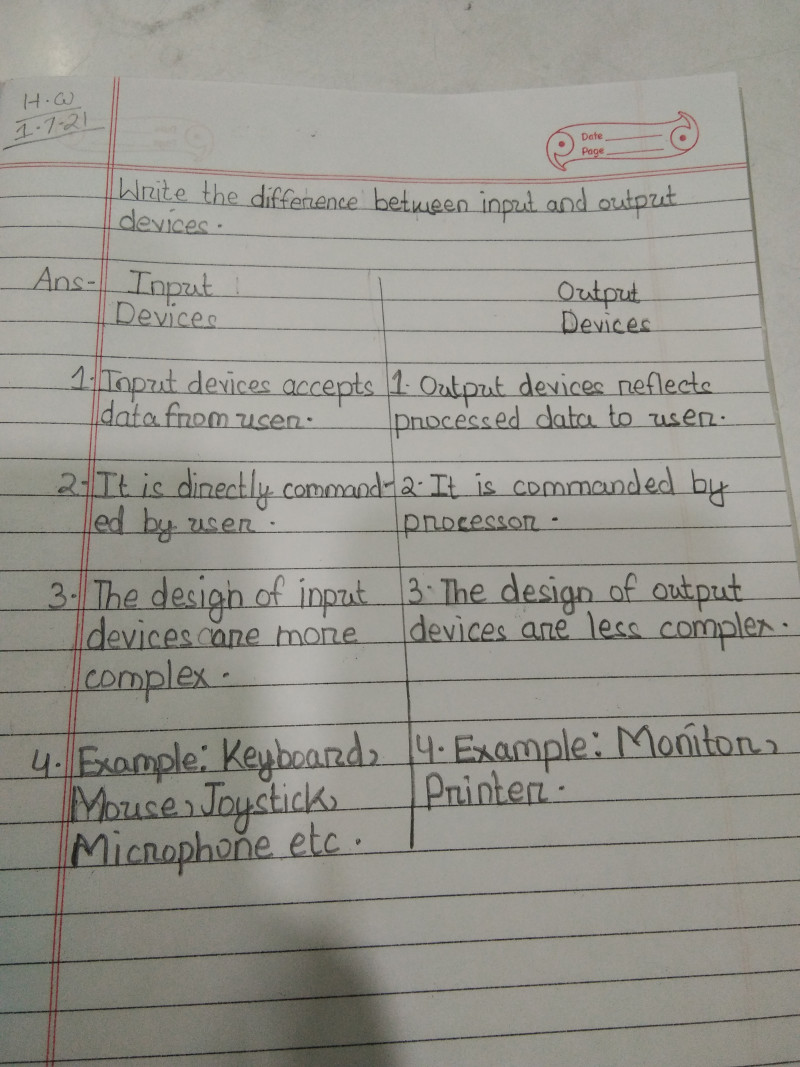 H.W
1-7-21
Date
Page
Write the difference between input and output
devices.
Ans- Input
Devices
Output
Devices
1. Input devices accepts
data from user.
1. Output devices reflects
processed data to user.
2. It is directly command-
ed by user.
2. It is commanded by
processor.
3. The design of input
devices are more
complex.
3. The design of output
devices are less complex.
4. Example: Keyboard,
Mouse, Joystick,
Microphone etc.
4. Example: Monitor,
Printer.